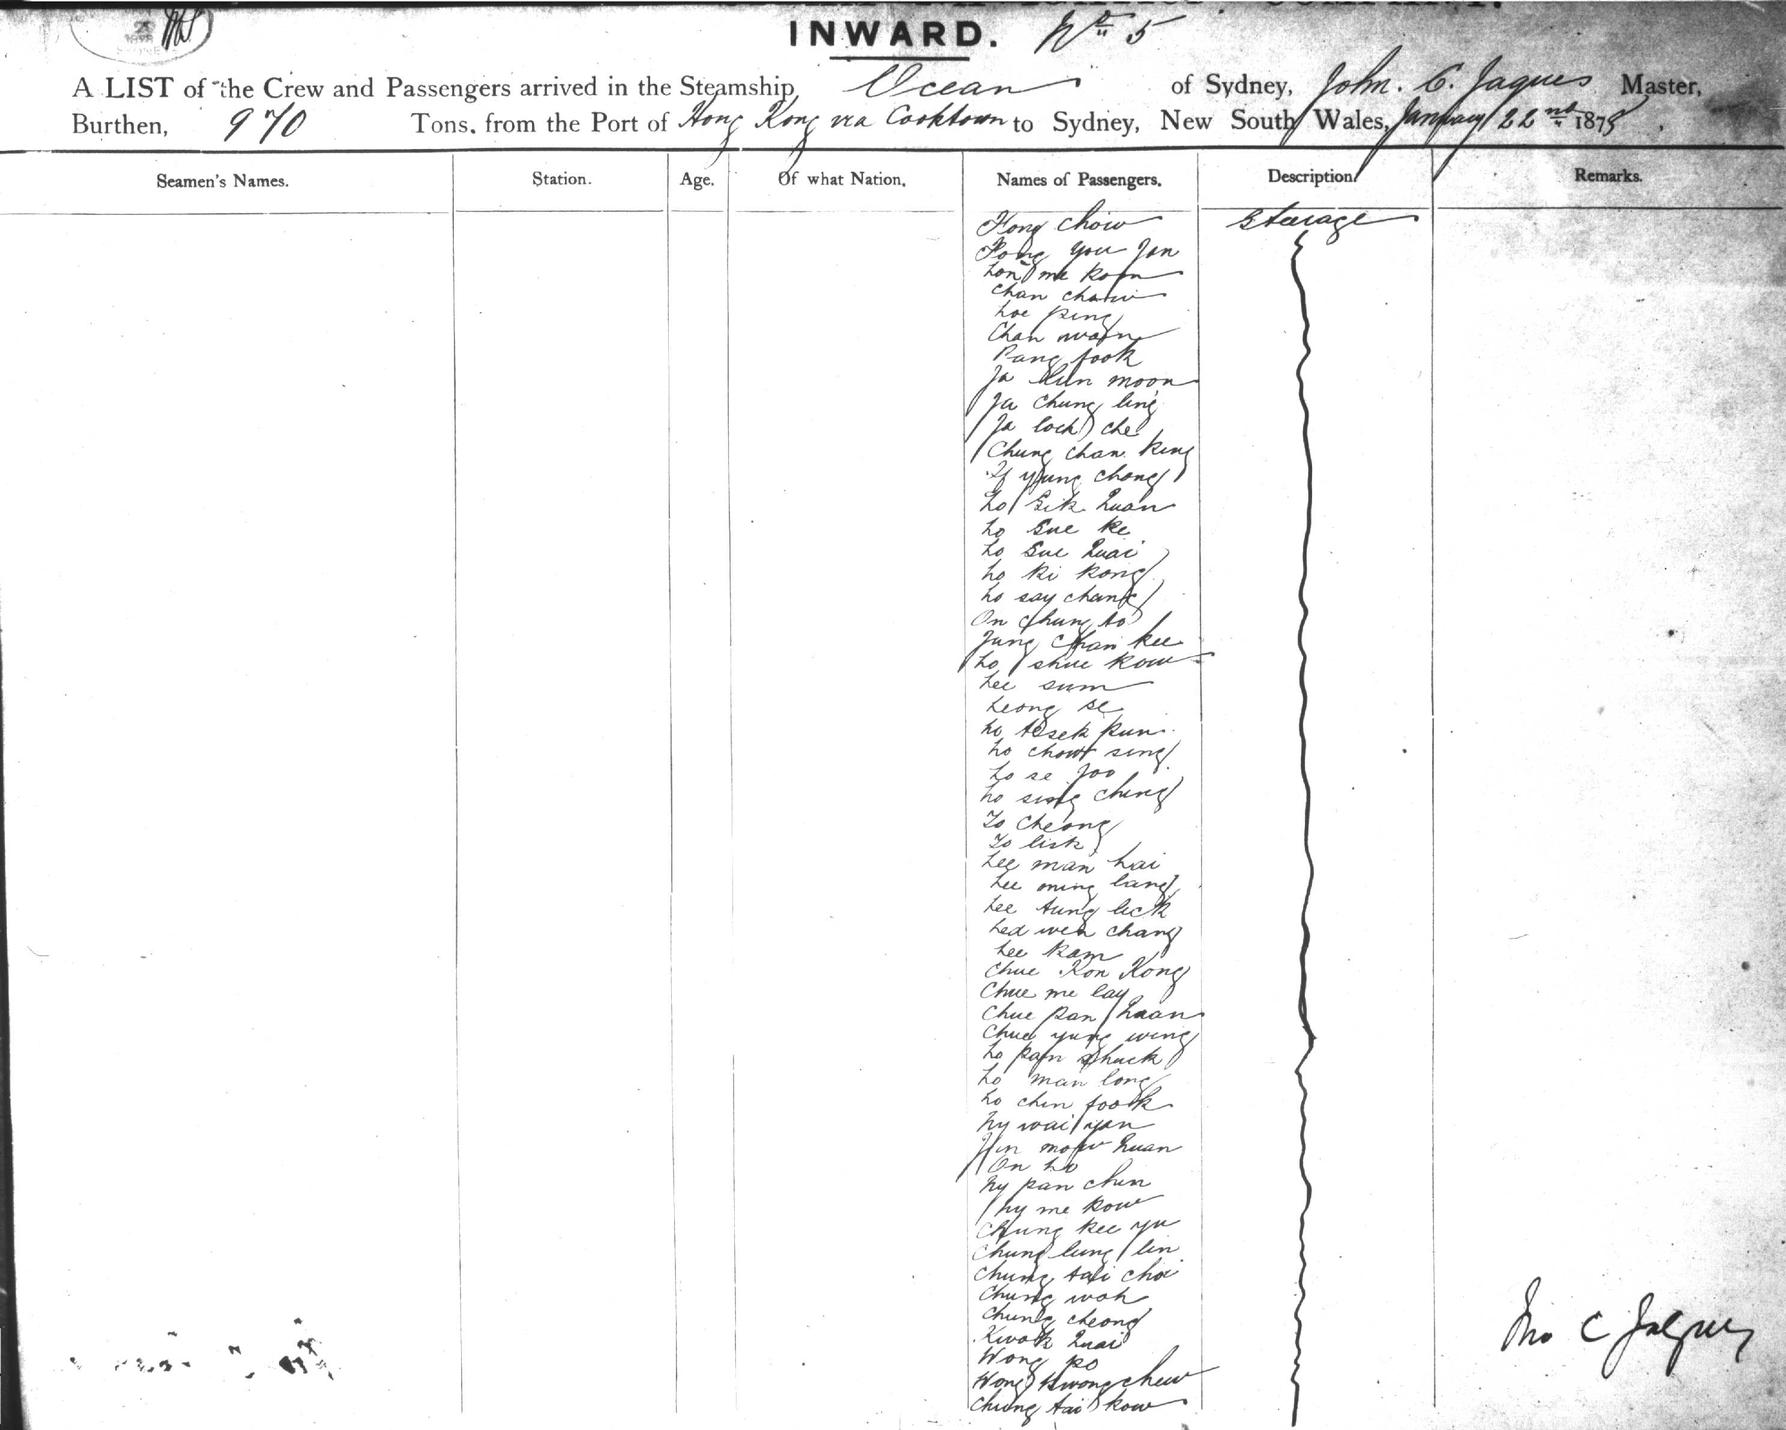 INWARD. No 5
A LIST of the Crew and Passengers arrived in the Steamship, Ocean of Sydney, John. C. Jaques Master,
Burthen, 970 Tons, from the Port of Hong Kong via Cooktown to Sydney, New South Wales, January 22nd 1878
Seamen's Names. Station. Age. Of what Nation. Names of Passengers. Description Remarks.
Fong Chow Steerage
Fong You Jan
Lon me koon
Chan chow
Loe ping
Chan warn
Pang fook
Ja Hun moon
Ja Chung ling
Ja lock che
Chung chan king
young chong
Lo Sik Quan
Lo Sue ke
Lo Sue Quai
Lo ki kong
Lo say chang
On chung to
Jung Chan kee
Lo shue kow
Lee sum
Leong se
Lo tsek kun
Lo chow sing
Lo se foo
Lo sing ching
To Cheong
To lisk
Lee man hai
Lee ming lang
Lee tung lick
Lee wen chang
Lee kam
Chue Kon Kong
Chue me lay
Chue pan Quan
Chue yung wing
Lo pan shuck
Lo man long
Lo chin fook
Ny wai yan
Jin mow Quan
On Lo
Ny pan chin
Ny me kow
Chung kee yu
Chung lung lin
Chung tai choi
Chung wah
Chung cheong
Kwok Quai
Wong po
Wong Kwong chew
Chung tai kow
Jno C Jaques